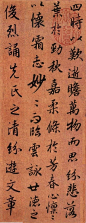 四時以歎逝瞻萬物而思紛悲落
葉於勁秋嘉柔條於芳春心懍〻
以懷霜志妙〻而臨雲詠世德之
俊烈誦先民之清芬遊文章